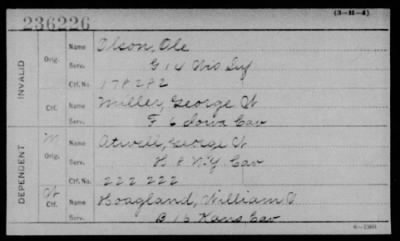 (3-11-4)
236226
INVALID
Orig. Name Olson, Ole
Serv. G 14 Wis Inf
Ctf. No. 178282
Ctf. Name Miller, George W
Serv. F 6 Iowa Cav
DEPENDENT
M Orig. Name Atwell, George W
Serv. H 8 N.Y. Cav
Ctf. No. 222 222
W Ctf. Name Hoagland, William
Serv. B 15 Kans Cav